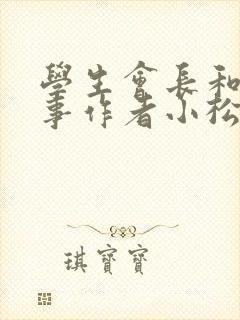 學生會長和
事作者小松
琪寶寶